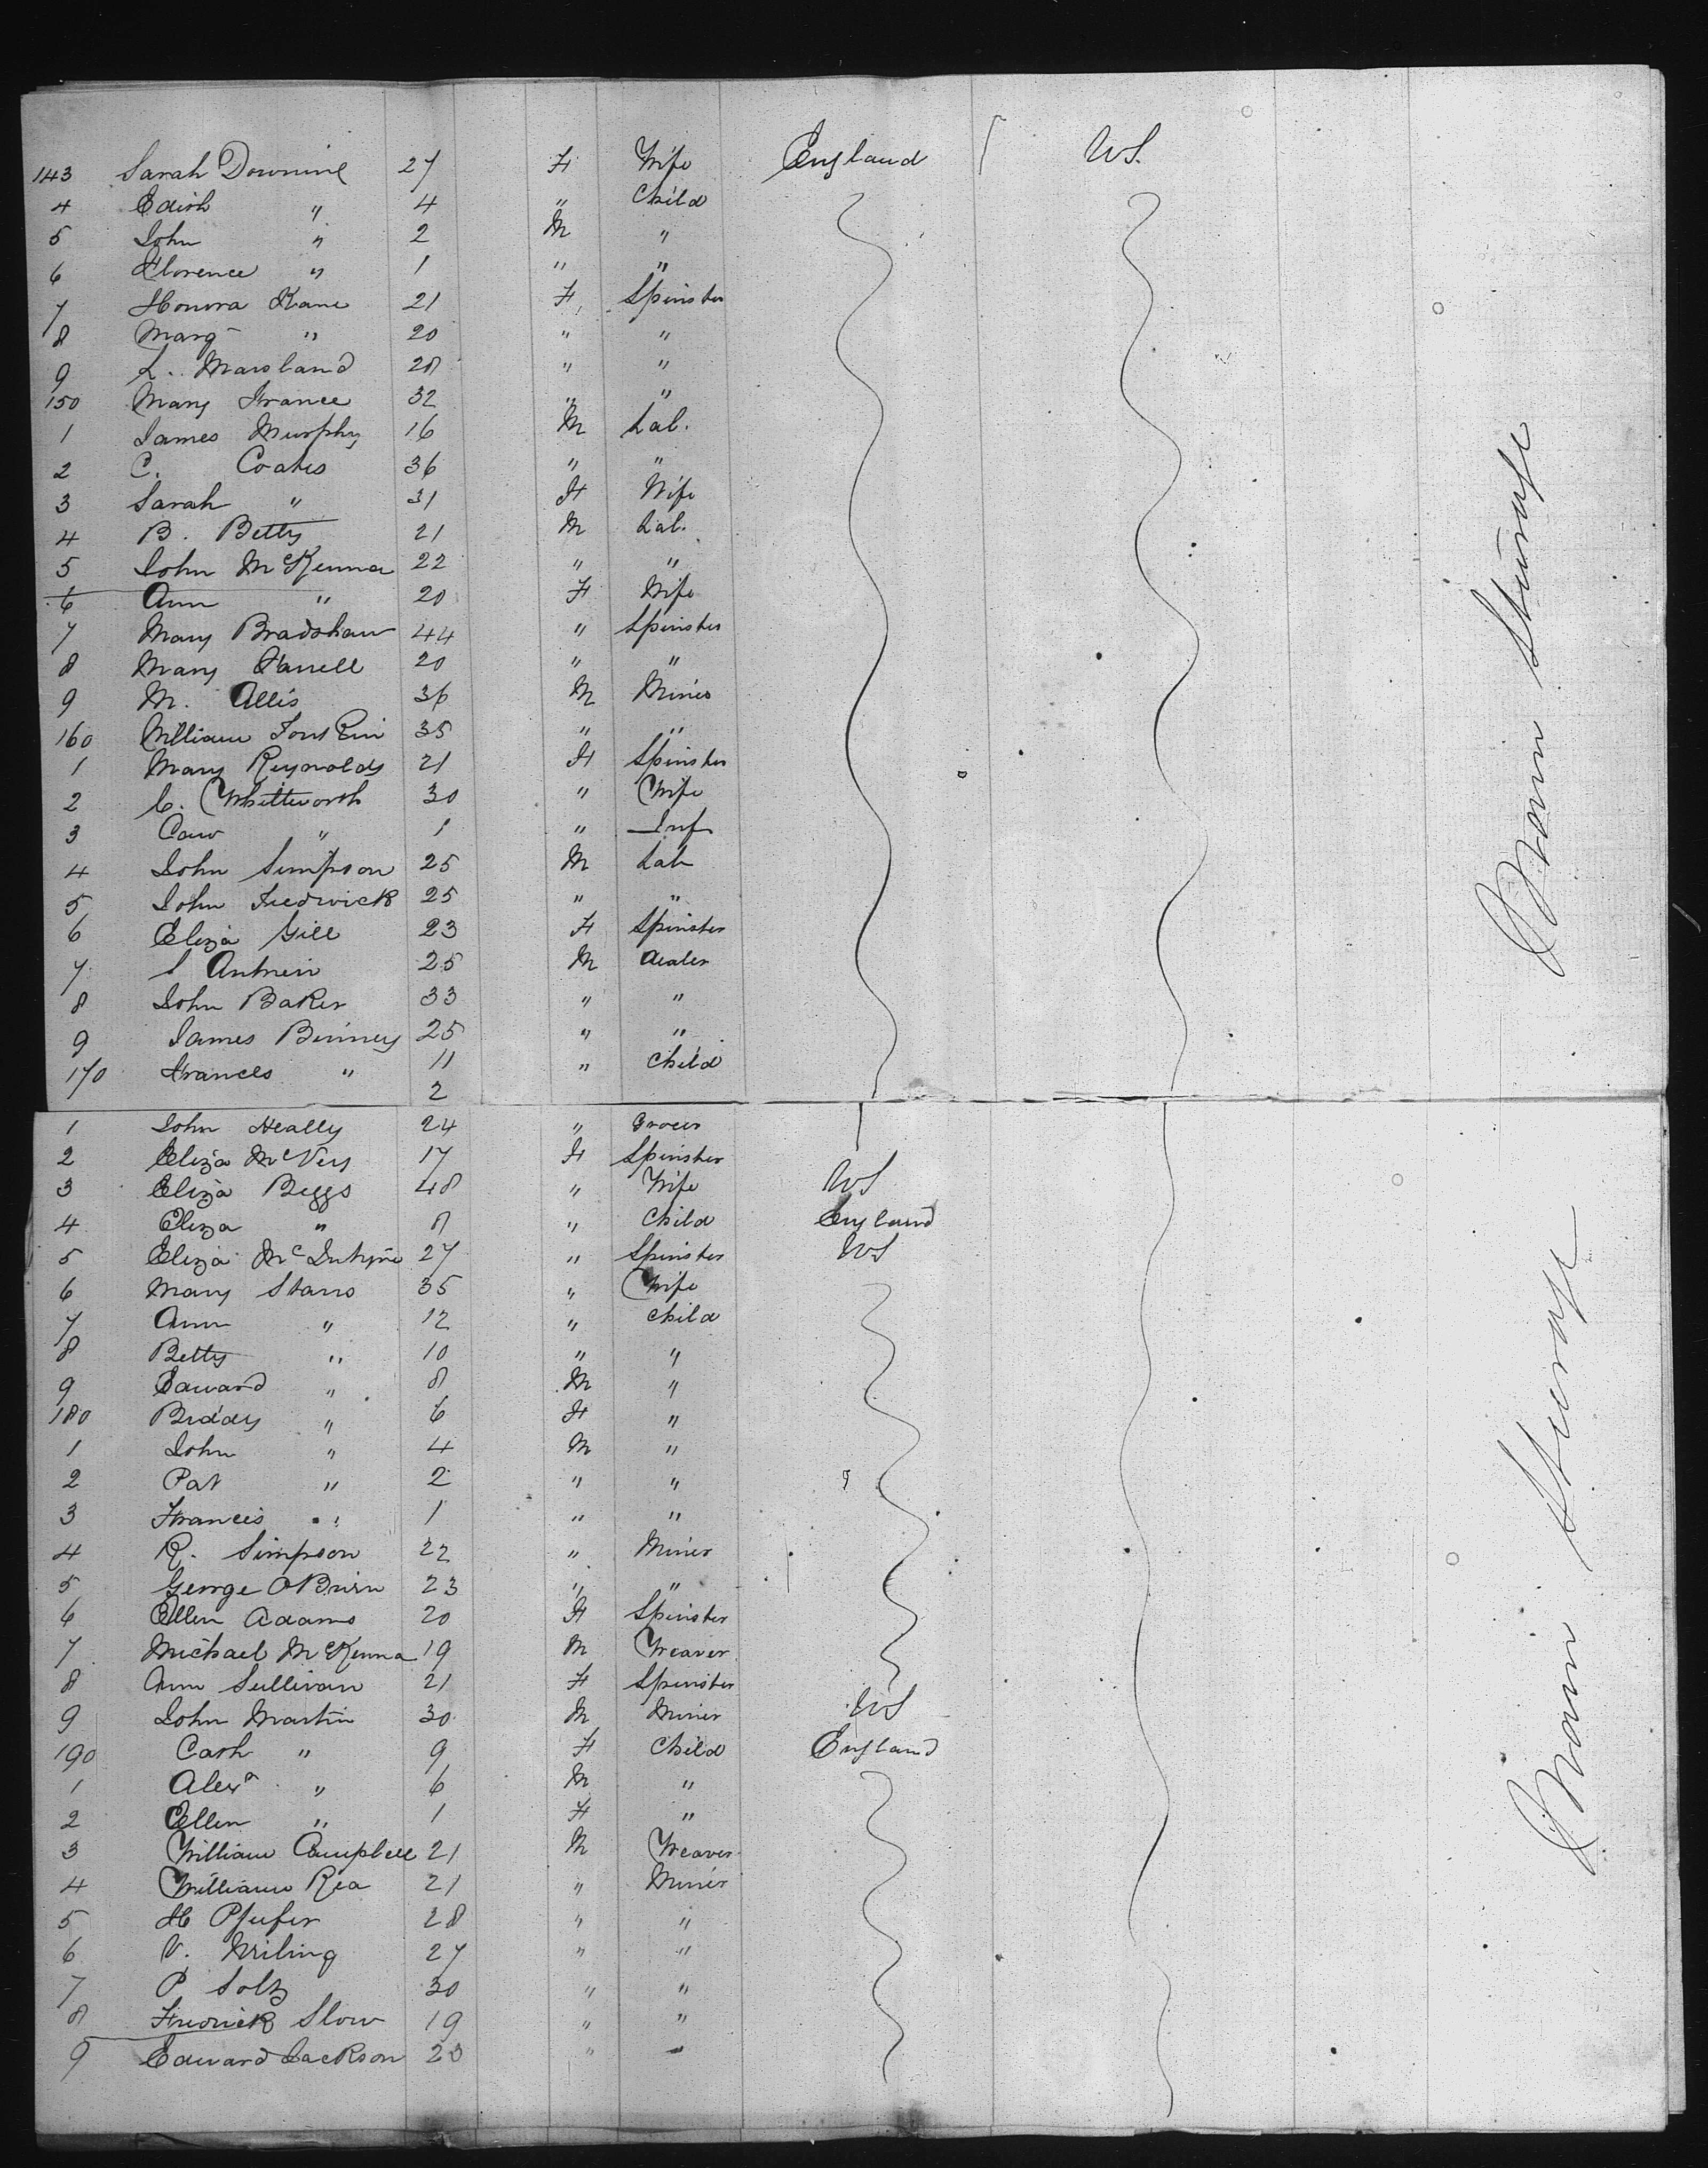 143 Sarah Downine 27 F Wife England US.
4 Edith " 4 " Child
5 John " 2 M "
6 Florence " 1 " "
7 Honora Kane 21 F Spinster
8 Marg " 20 " "
9 L. Marsland 28 " "
150 Mary France 32 " "
1 James Murphy 16 M Lab.
2 C. Coates 36 " "
3 Sarah " 31 F Wife
4 B. Betty 21 M Lab.
5 John McKenna 22 " "
6 Ann " 20 F Wife
7 Mary Bradshaw 44 " Spinster
8 Mary Farrell 20 " "
9 M. Allis 36 M Miner
160 William 35 " "
1 Mary Reynolds 21 F Spinster
2 C. Whittworth 30 " Wife
3 " 1 " Inf
4 John Simpson 25 M Lab
5 John 25 " "
6 Eliza Gill 23 F Spinster
7 S 25 M dealer
8 John Baker 33 " "
9 James Binney 25 " "
170 Frances " 11 " Child
2
1 John Heally 24 " Grocer
2 Eliza McVey 17 F Spinster
3 Eliza Beggs 48 " Wife US
4 Eliza " 8 " Child England
5 Eliza McIntyre 27 " Spinster US
6 Mary Stans 35 " Wife
7 Ann " 12 " Child
8 Betty " 10 " "
9 Edward " 8 M "
180 Biddy " 6 F "
1 John " 4 M "
2 Pat " 2 " "
3 Francis " 1 " "
4 R. Simpson 22 " Miner
5 George OBrien 23 " "
6 Ellen Adams 20 F Spinster
7 Michael McKenna 19 M Weaver
8 Ann Sullivan 21 F Spinster
9 John Martin 30 M Miner US
190 Cath " 9 F Child England
1 Alexr " 6 M "
2 Ellen " 1 F "
3 William Campbell 21 M Weaver
4 William Rea 21 " Miner
5 H Pfeifer 28 " "
6 V. 27 " "
7 P Soltz 30 " "
8 Fredrick Slow 19 " "
9 Edward Jackson 23 " "
Main Steerage
Main Steerage